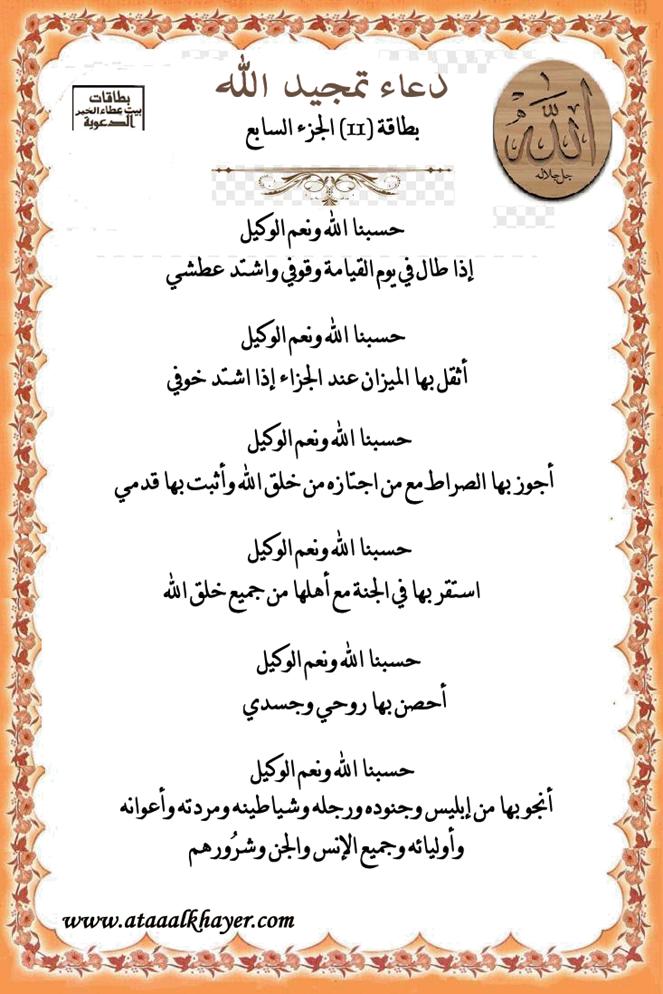 دعاء تمجيد الله
بطاقة (11) الجزء السابع
بطاقات
بيت عطاء الخير
الدعوية
الله
جل جلاله
حسبنا الله ونعم الوكيل
إذا طال في يوم القيامة وقوفي واشتد عطشي
حسبنا الله ونعم الوكيل
أثقل بها الميزان عند الجزاء إذا اشتد خوفي
حسبنا الله ونعم الوكيل
أجوز بها الصراط مع من اجتازه من خلق الله وأثبت بها قدمي
حسبنا الله ونعم الوكيل
استقر بها في الجنة مع أهلها من جميع خلق الله
حسبنا الله ونعم الوكيل
أحصن بها روحي وجسدي
حسبنا الله ونعم الوكيل
أنجو بها من إبليس وجنوده ورجله وشياطينه ومردته وأعوانه
وأوليائه وجميع الإنس والجن وشرُورهم
www.ataaalkhayer.com